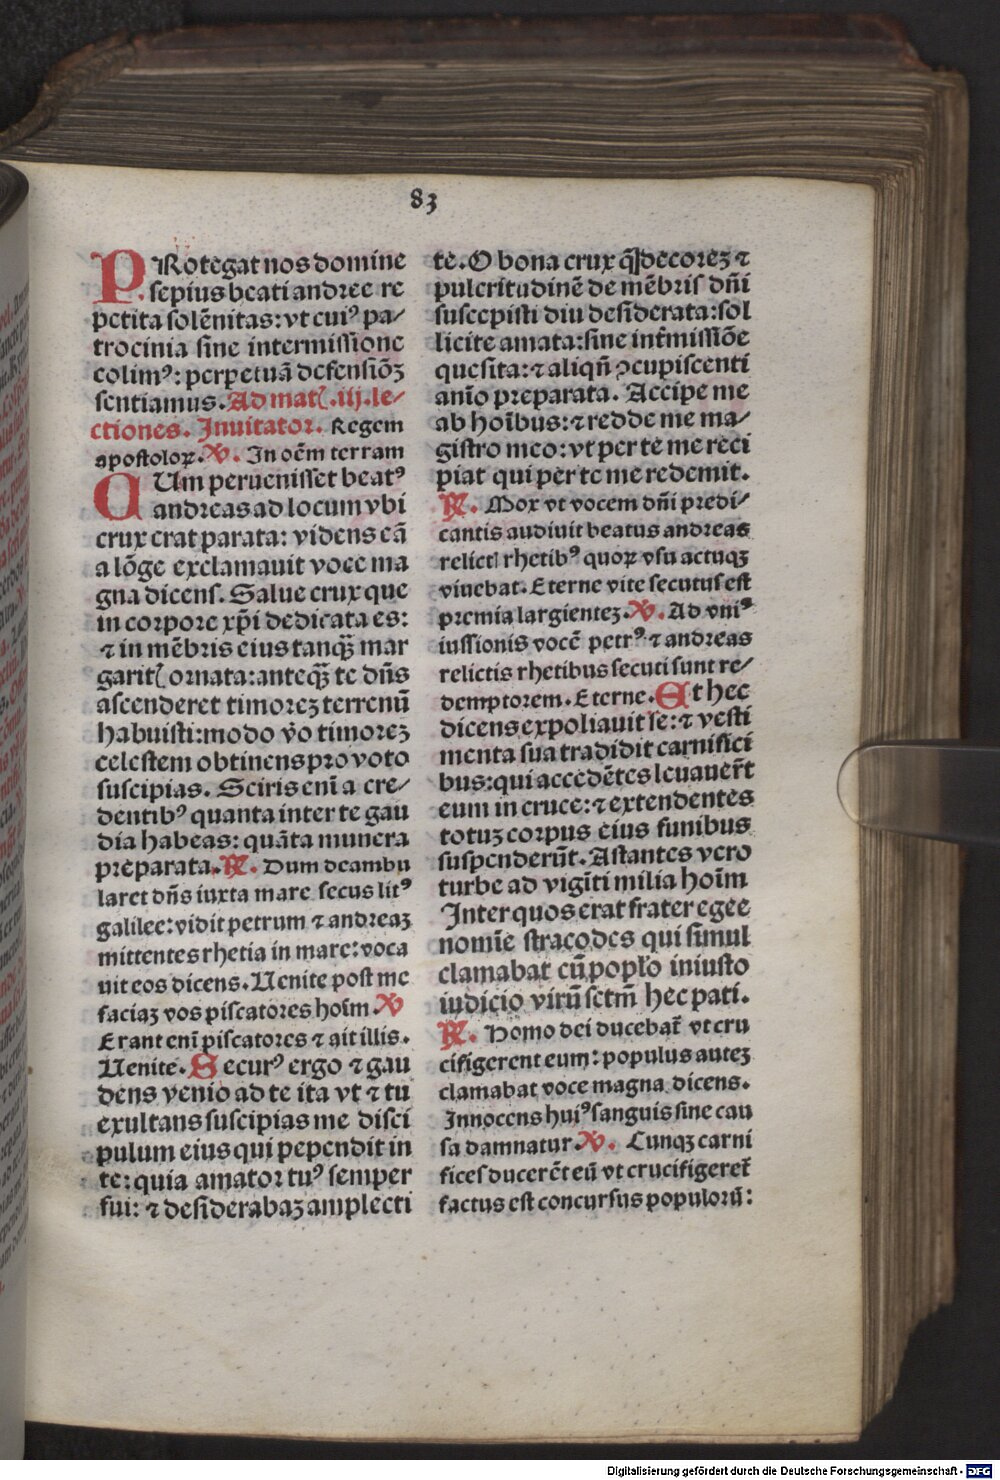 83
PRotegat nos domine
sepius beati andree re
petita solēnitas: vt cuiꝰ pa⸗
trocinia sine intermissione
colimꝰ: perpetuā defensiōꝫ
sentiamus. Ad mat . iij. le⸗
ctiones. Inuitator. Regem
apostoloꝝ. ℣. In oēm terram
CUm peruenisset beatꝰ
andreas ad locum vbi
crux erat parata: videns eā
a lōge exclamauit voce ma
gna dicens. Salue crux que
in corpore xp̄i dedicata es:
⁊ in mēbris eius tanqꝫ̄ mar
garit ornata: anteqꝫ̄ te dn̄s
ascenderet timoreꝫ terrenū
habuisti: modo v̄o timoreꝫ
celestem obtinens pro voto
suscipias. Sciris enī a cre⸗
dentibꝰ quanta inter te gau
dia habeas: quāta munera
preparata. ℟. Dum deambu
laret dn̄s iuxta mare secus litꝰ
galilee: vidit petrum ⁊ andreaꝫ
mittentes rhetia in mare: voca
uit eos dicens. Uenite post me
faciaꝫ vos piscatores hoīm. ℣
Erant enī piscatores ⁊ ait illis.
Uenite. Securꝰ ergo ⁊ gau
dens venio ad te ita vt ⁊ tu
exultans suscipias me disci
pulum eius qui pependit in
te: quia amator tuꝰ semper
fui: ⁊ desiderabaꝫ amplecti
te. O bona crux q̄ decoreꝫ ⁊
pulcritudinē de mēbris dn̄i
suscepisti diu desiderata: sol
licite amata: sine int̄missiōe
quesita: ⁊ aliqn̄ ꝯcupiscenti
anīo preparata. Accipe me
ab hoībus: ⁊ redde me ma⸗
gistro meo: vt per te me reci
piat qui per te me redemit.
℟. Mox vt vocem dn̄i predi⸗
cantis audiuit beatus andreas
relict rhetibꝰ quoꝝ vsu actuqꝫ
viuebat. Eterne vite secutus est
premia largienteꝫ. ℣. Ad vniꝰ
iussionis vocē petrꝰ ⁊ andreas
relictis rhetibus secuti sunt re⸗
demptorem. Eterne. Et hec
dicens expoliauit se: ⁊ vesti
menta sua tradidit carnifici
bus: qui accedētes leuauer̄t
eum in cruce: ⁊ extendentes
totuꝫ corpus eius funibus
suspenderūt. Astantes vero
turbe ad vigīti milia hoīm
Inter quos erat frater egee
nomīe stracodes qui simul
clamabat cū popl̄o iniusto
iudicio virū sctm̄ hec pati.
℟. Homo dei ducebat̄ vt cru
cifigerent eum: populus auteꝫ
clamabat voce magna dicens.
Innocens huiꝰ sanguis sine cau
sa damnatur. ℣. Cunqꝫ carni
fices ducerēt eū vt crucifigeret̄
factus est concursus populorū:
Digitalisierung gefördert durch die Deutsche Forschungsgemeinschaft - DFG